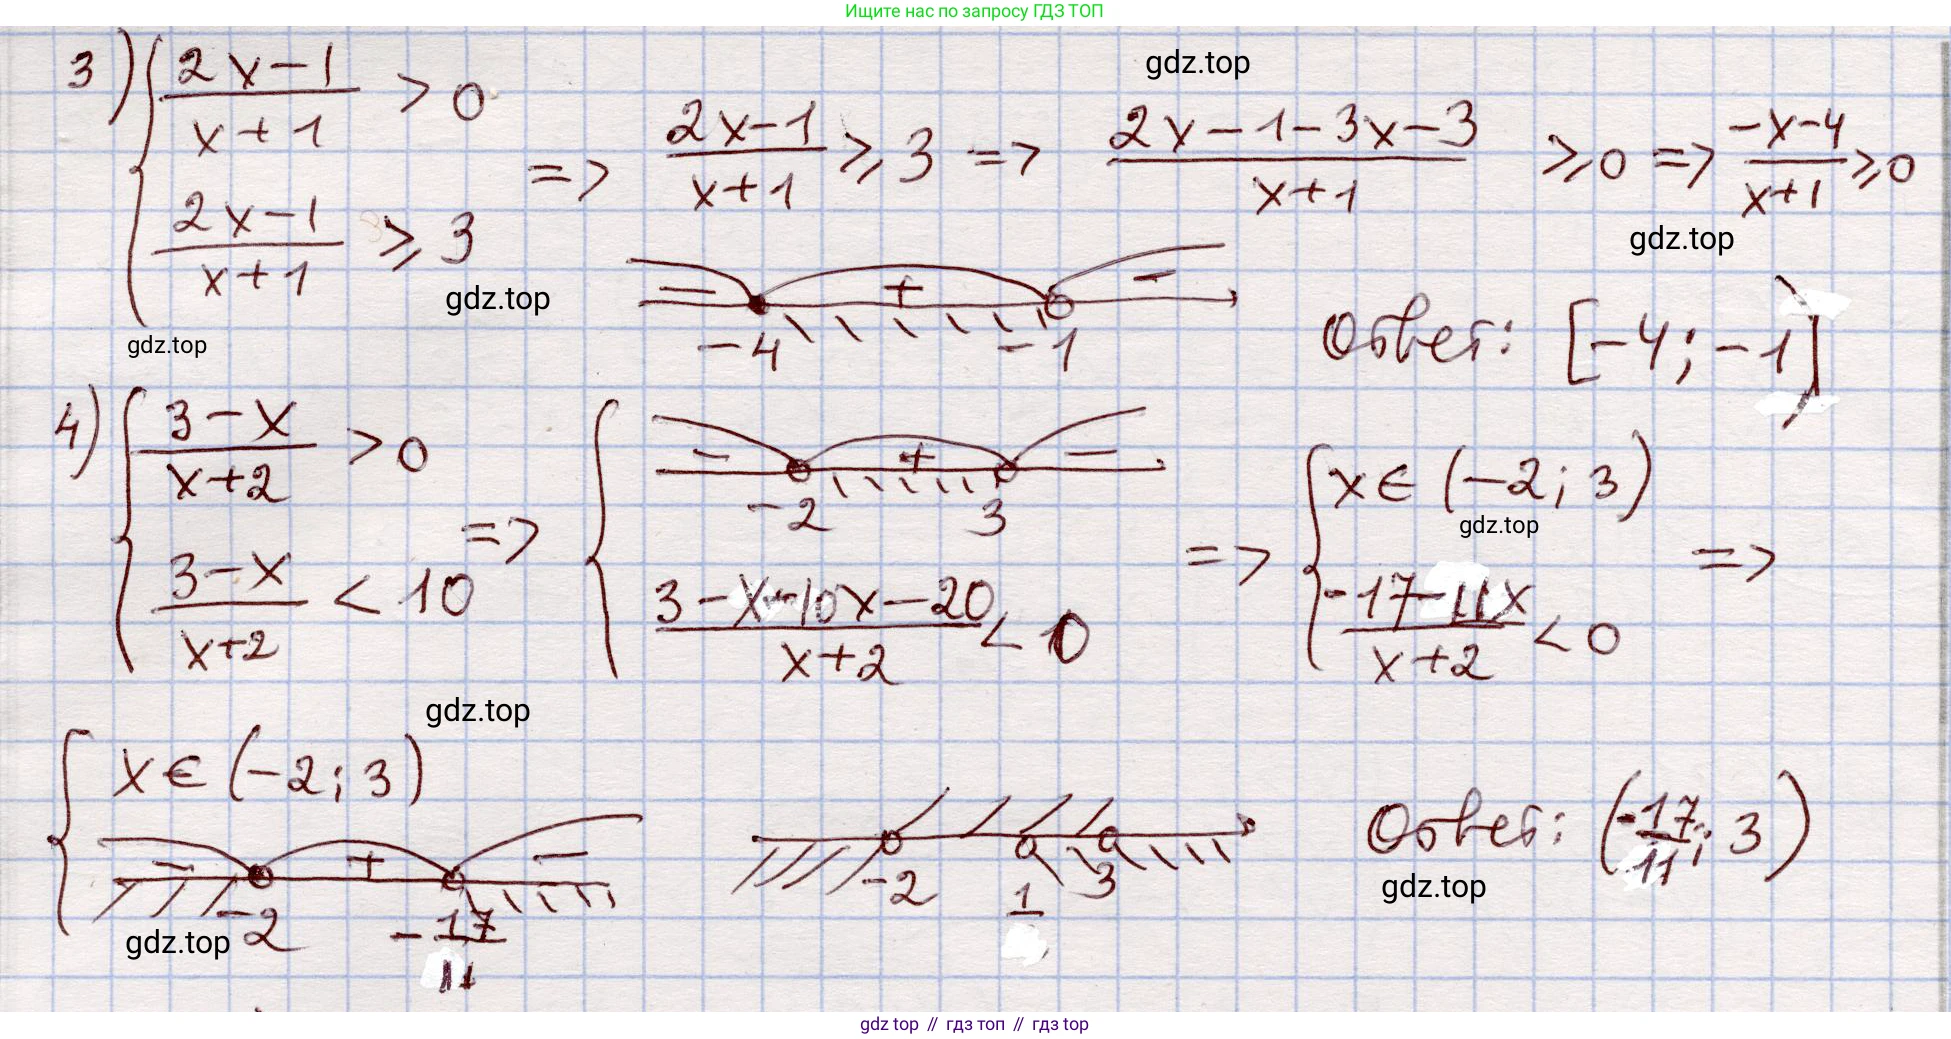 Ищите нас по запросу ГДЗ ТОП
3) { (2x-1)/(x+1) > 0
(2x-1)/(x+1) ⩾ 3
=> (2x-1)/(x+1) ⩾ 3 => (2x-1-3x-3)/(x+1) ⩾ 0 => (-x-4)/(x+1) ⩾ 0
gdz.top
gdz.top
gdz.top
gdz.top
- + -
-4 -1
Ответ: [-4; -1)
4) { (3-x)/(x+2) > 0
(3-x)/(x+2) < 10
=> { - + -
-2 3
(3-x-10x-20)/(x+2) < 0
=> { x ∈ (-2; 3)
gdz.top
(-17-11x)/(x+2) < 0
=>
gdz.top
{ x ∈ (-2; 3)
- + -
-2 -17/11
gdz.top
-2 1 3
Ответ: (-17/11; 3)
gdz.top
gdz top // гдз топ // гдз top